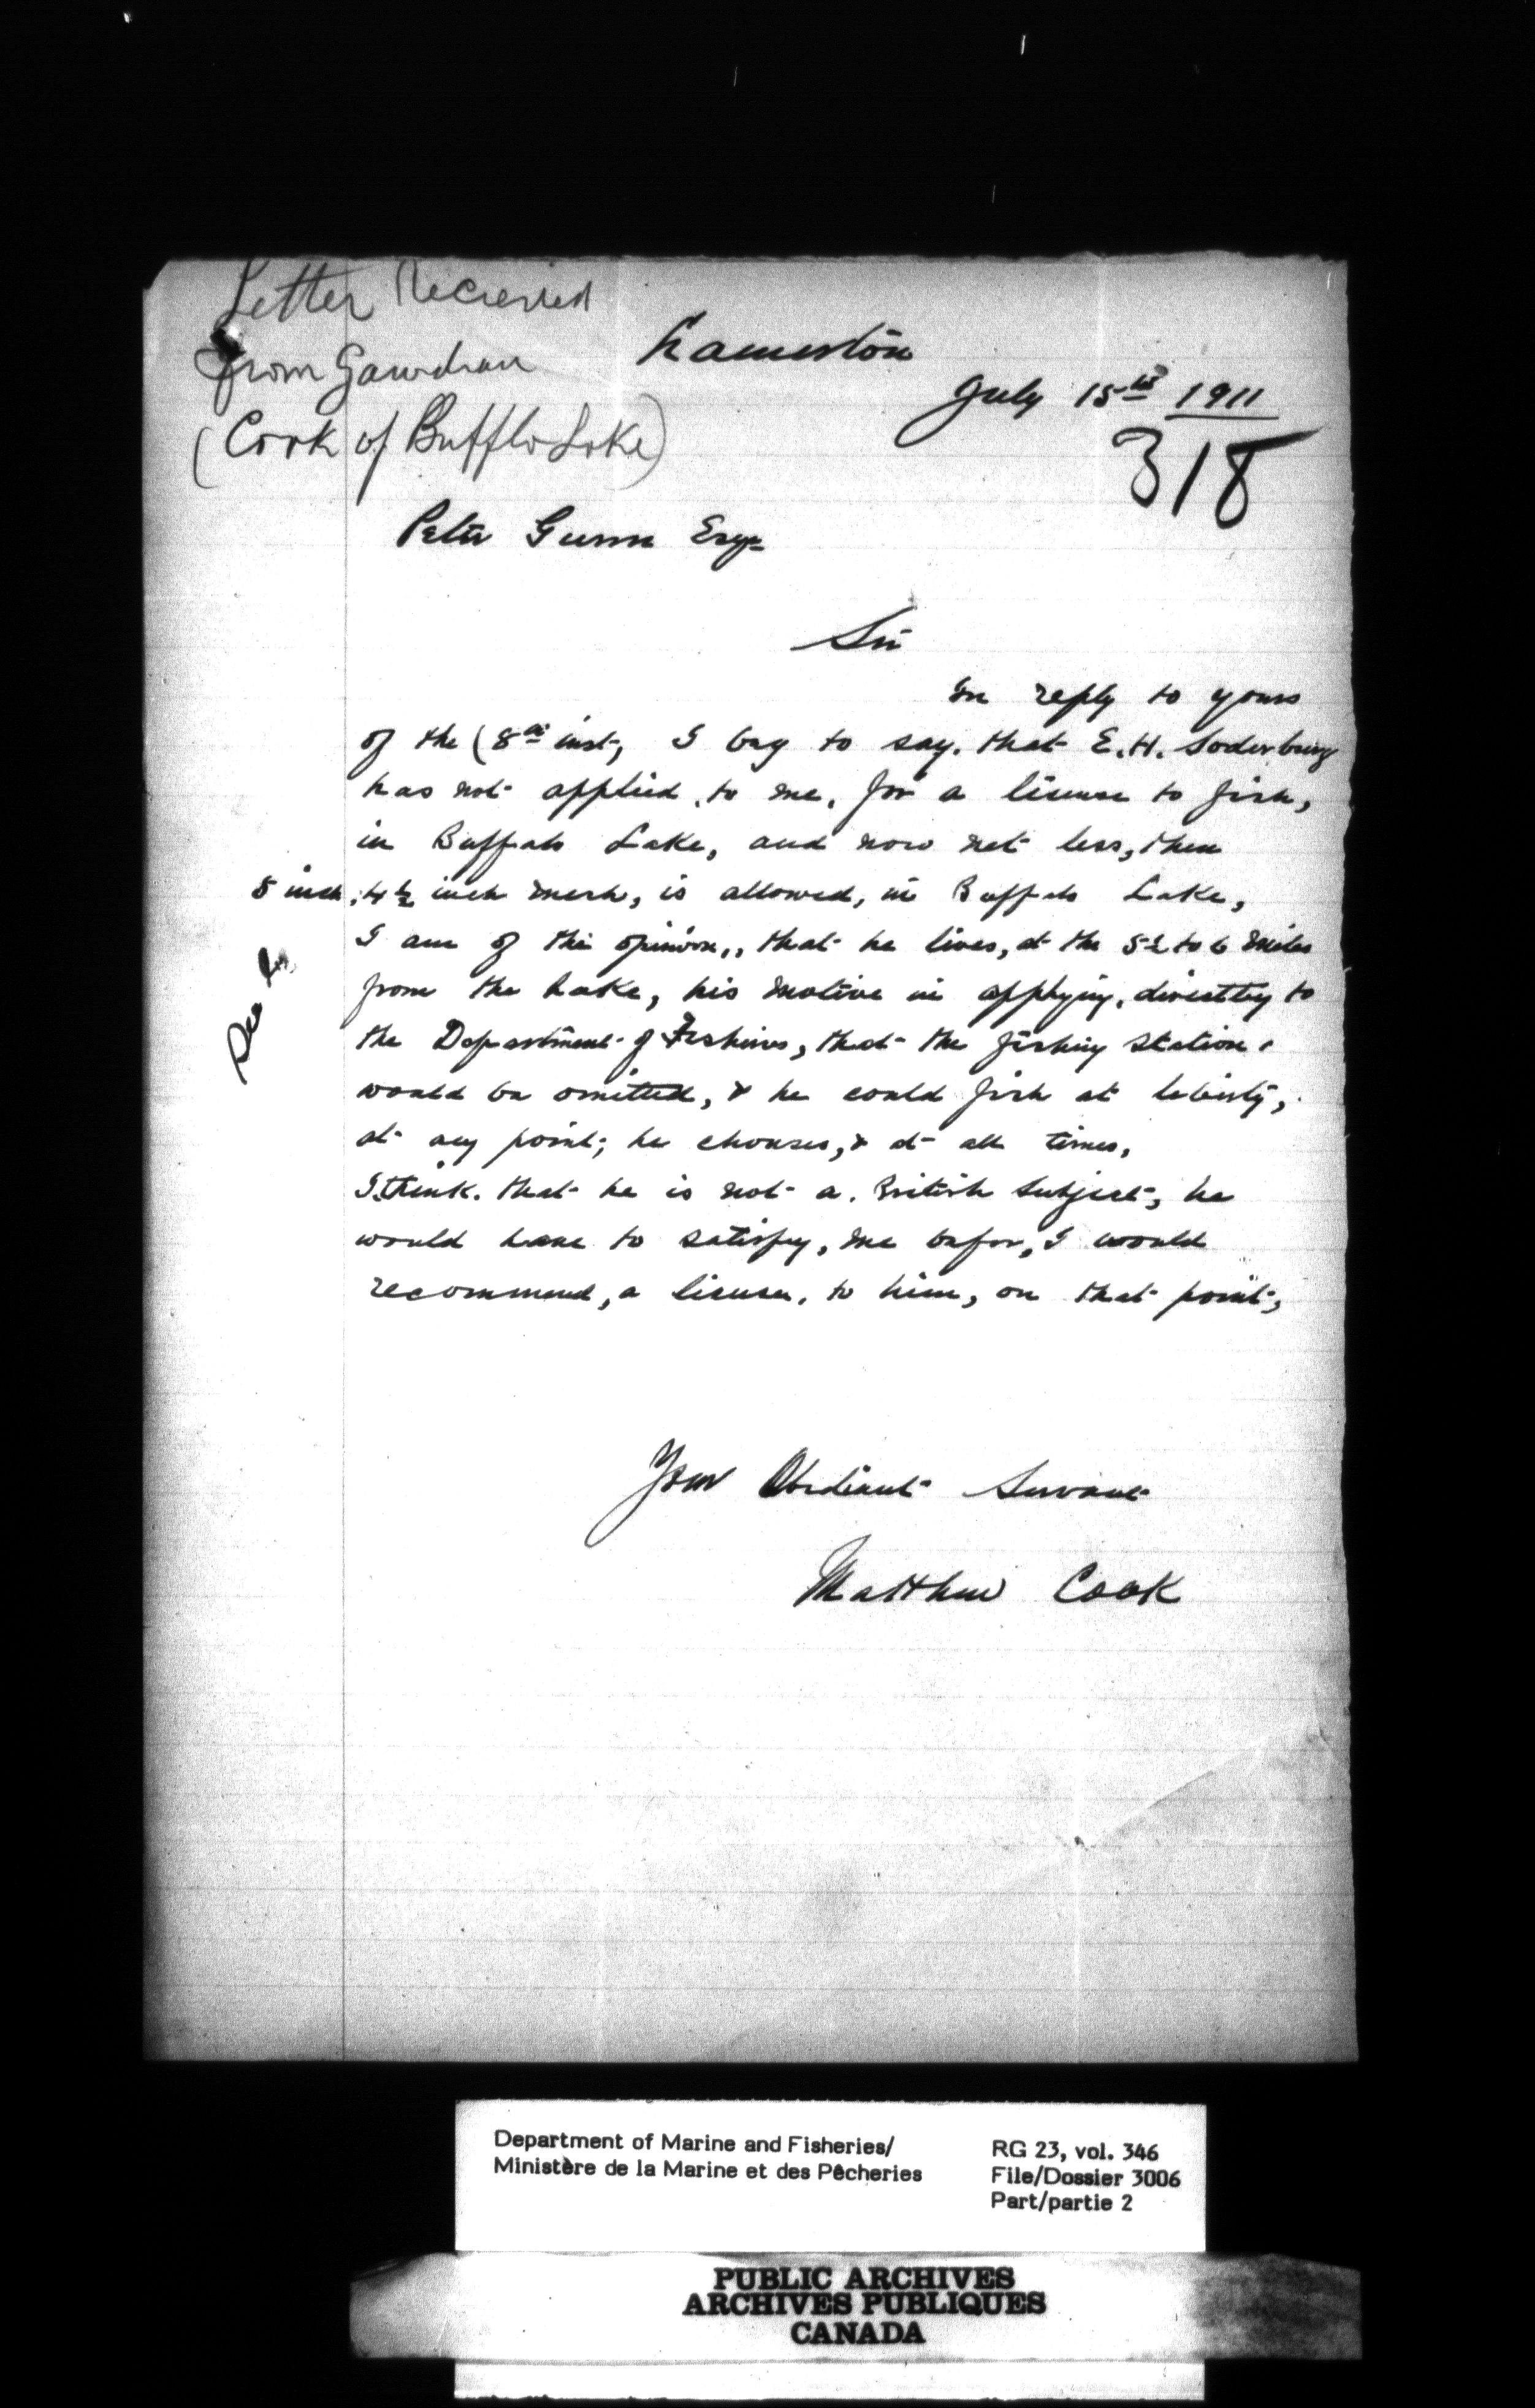 Letter Recieved
from Gaurdian
(Cook of Bufflo Lake)
Lamerton
July 15th 1911
318
Peter Gunn Esqr
Sir
In reply to yours
of the (8th inst, I beg to say. that E. H. Soderburg
has not applied, to me, for a license to fish,
in Buffalo Lake, and now not less, then
5 inch, 4½ inch mesh, is allowed, in Buffalo Lake,
I am of the opinion,, that he lives, at the 5½ to 6 miles
from the Lake, his motive in applying, directly to
the Department of Fisheries, that the fishing station.
would be omitted, & he could fish at liberty,
at any point, he chouses, & at all times,
I think. that he is not a. British Subject, he
would have to satisfy, me befor, I would
recommend, a license, to him, on that point,
Your Obediant Servant
Matthew Cook
Department of Marine and Fisheries/
Ministère de la Marine et des Pêcheries
RG 23, vol. 346
File/Dossier 3006
Part/partie 2
PUBLIC ARCHIVES
ARCHIVES PUBLIQUES
CANADA